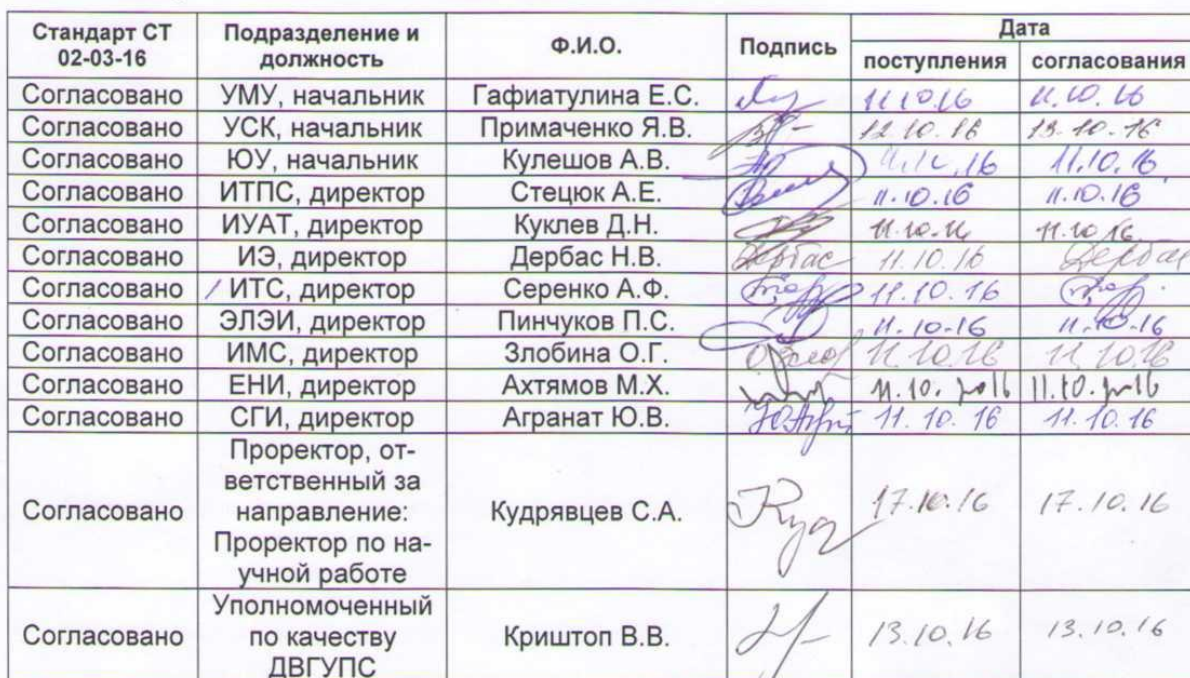 Стандарт СТ 02-03-16 Подразделение и должность Ф.И.О. Подпись Дата
поступления согласования
Согласовано УМУ, начальник Гафиатулина Е.С. 11.10.16 11.10.16
Согласовано УСК, начальник Примаченко Я.В. 12.10.16 13.10.16
Согласовано ЮУ, начальник Кулешов А.В. 11.10.16
Согласовано ИТПС, директор Стецюк А.Е. 11.10.16 11.10.16
Согласовано ИУАТ, директор Куклев Д.Н. 11.10.16 11.10.16
Согласовано ИЭ, директор Дербас Н.В. Дербас 11.10.16 Дербас
Согласовано ИТС, директор Серенко А.Ф. 11.10.16
Согласовано ЭЛЭИ, директор Пинчуков П.С. 11.10.16 11.10.16
Согласовано ИМС, директор Злобина О.Г. 11.10.16 11.10.16
Согласовано ЕНИ, директор Ахтямов М.Х. 11.10.2016 11.10.2016
Согласовано СГИ, директор Агранат Ю.В. 11.10.16 11.10.16
Согласовано Проректор, от-
ветственный за
направление:
Проректор по на-
учной работе Кудрявцев С.А. 17.10.16 17.10.16
Согласовано Уполномоченный
по качеству
ДВГУПС Криштоп В.В. 13.10.16 13.10.16